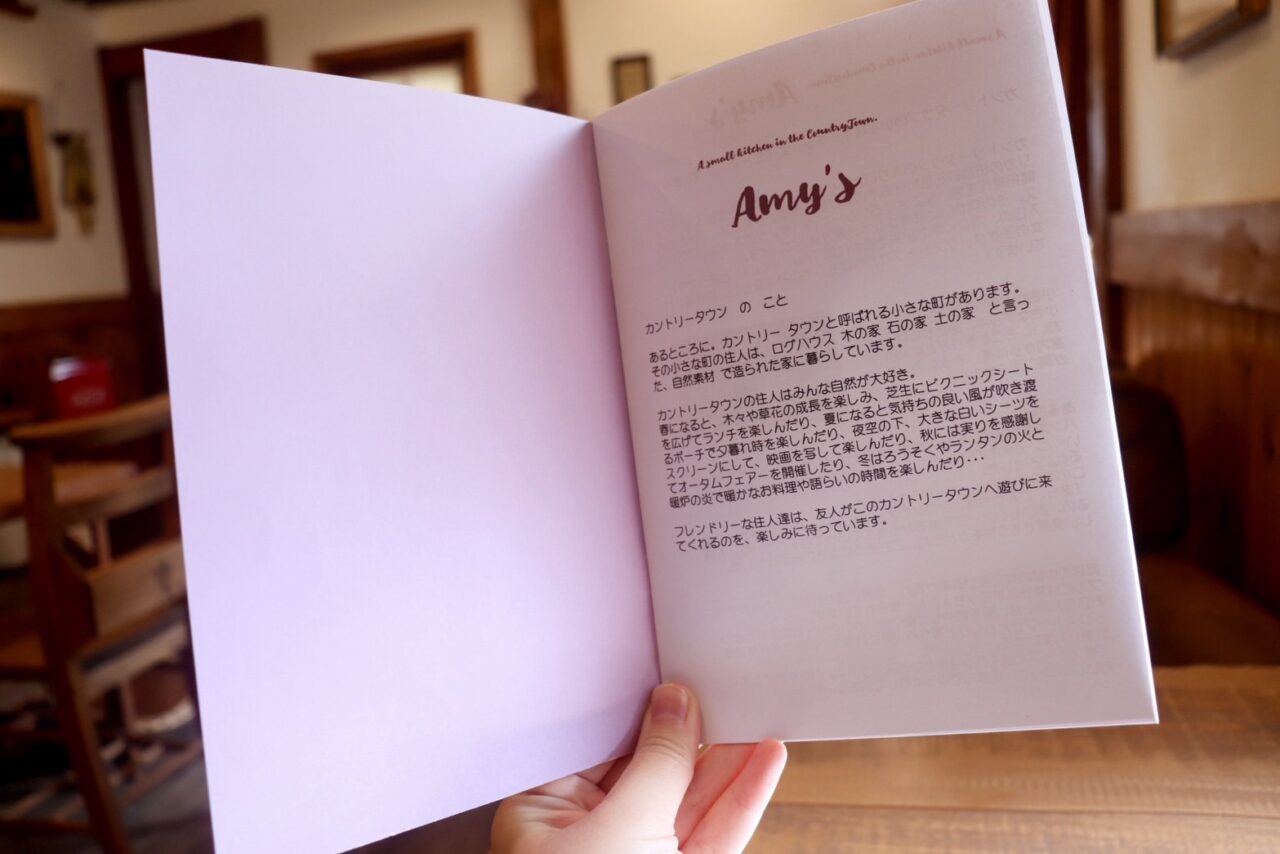 A small kitchen in the CountryTown.
Amy's
カントリータウン の こと
あるところに。カントリー タウンと呼ばれる小さな町があります。
その小さな町の住人は、ログハウス 木の家 石の家 土の家 と言っ
た、自然素材 で造られた家に暮らしています。
カントリータウンの住人はみんな自然が大好き。
春になると、木々や草花の成長を楽しみ、芝生にピクニックシート
を広げてランチを楽しんだり、夏になると気持ちの良い風が吹き渡
るポーチで夕暮れ時を楽しんだり、夜空の下、大きな白いシーツを
スクリーンにして、映画を写して楽しんだり、秋には実りを感謝し
てオータムフェアーを開催したり、冬はろうそくやランタンの火と
暖炉の炎で暖かなお料理や語らいの時間を楽しんだり・・・
フレンドリーな住人達は、友人がこのカントリータウンへ遊びに来
てくれるのを、楽しみに待っています。